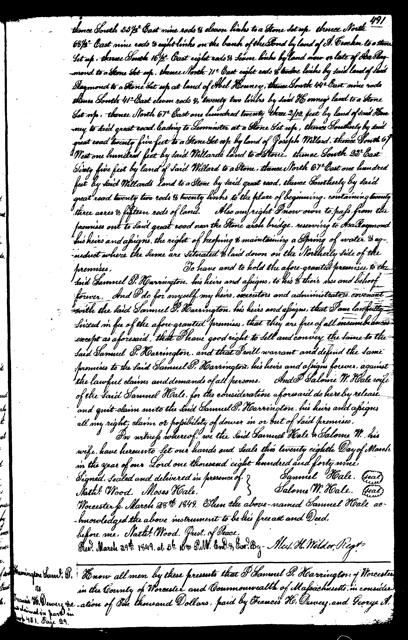 491
thence South 55½° East nine rods & eleven links to a Stone set up. thence North
65½° East nine rods & eight links on the bank of the Pond by land of A. Crocker to a stone
Set up. thence South 16½° East eight rods & links by land now or late of Asa Ray-
mond to a Stone Set up, thence North 71° East eight rods & twelve links by said land of said
Raymond to a Stone Set up at land of Abel Kenney, thence South 44° East nine rods
thence South 41° East eleven rods & twenty two links by said Kenney land to a Stone
Set up. thence North 67° East one hundred twenty three 2/12 feet by land of said Ken-
ney to said great road leading to Leominster at a Stone Set up, thence Southerly by said
great road twenty five feet to a Stone Set up by land of Joseph Willard, thence South 67°
West one hundred feet by said Willards land to a Stone. thence South 33° East
Sixty five feet by land of said Willard to a Stone, thence North 67° East one hundred
feet by said Willards Land to a Stone by said great road, thence Southerly by said
great road twenty two rods & twenty links to the place of beginning, containing twenty
three acres & fifteen rods of land. Also any right I now own to pass from the
premises out to said great road near the Stone arch bridge. reserving to Asa Raymond
his heirs and assigns, the right of keeping & maintaining a Spring of water & aq-
ueduct where the same are situated & laid down on the Northerly side of the
premises. To have and to hold the afore-granted premises, to the
said Samuel P. Harrington, his heirs and assigns, to his & their use and behoof
forever. And I do for myself, my heirs, executors and administrators, covenant
with the said Samuel P. Harrington, his heirs and assigns, that I am lawfully
Seized in fee of the afore-granted premises, that they are free of all incumbrances
except as aforesaid, that I have good right to sell and convey the same to the
said Samuel P. Harrington, and that I will warrant and defend the same
premises to the said Samuel P. Harrington, his heirs and assigns forever, against
the lawful claims and demands of all persons. And I Salome W. Hale wife
of the said Samuel Hale, for the consideration aforesaid do hereby release
and quit-claim unto the said Samuel P. Harrington, his heirs and assigns
all my right, claim or possibility of dower in or out of said premises.
In witness whereof, we the said Samuel Hale & Salome W. his
wife, have hereunto Set our hands and Seals this twenty eighth Day of March
in the year of our Lord one thousand eight hundred and forty-nine.
Signed, Sealed and delivered in presence of } Samuel Hale. (seal)
Nathl. Wood. Moses Hale. } Salome W. Hale (seal)
Worcester ss. March 28th 1849. Then the above-named Samuel Hale ac-
knowledged the above instrument to be his free act and Deed.
before me, Nathl. Wood. Just. of Peace.
Recd. March 29th 1849, at 6h P.M. Ent'd & Ex'd By Alex. H. Wilder, Regr.
Harrington Saml. P.
to
Francis H. Dewey
Know all men by these presents that I Samuel P. Harrington, of Worcester
in the County of Worcester and Commonwealth of Massachusetts, in consider-
ation of Five thousand Dollars, paid by Francis H. Dewey, and George A.